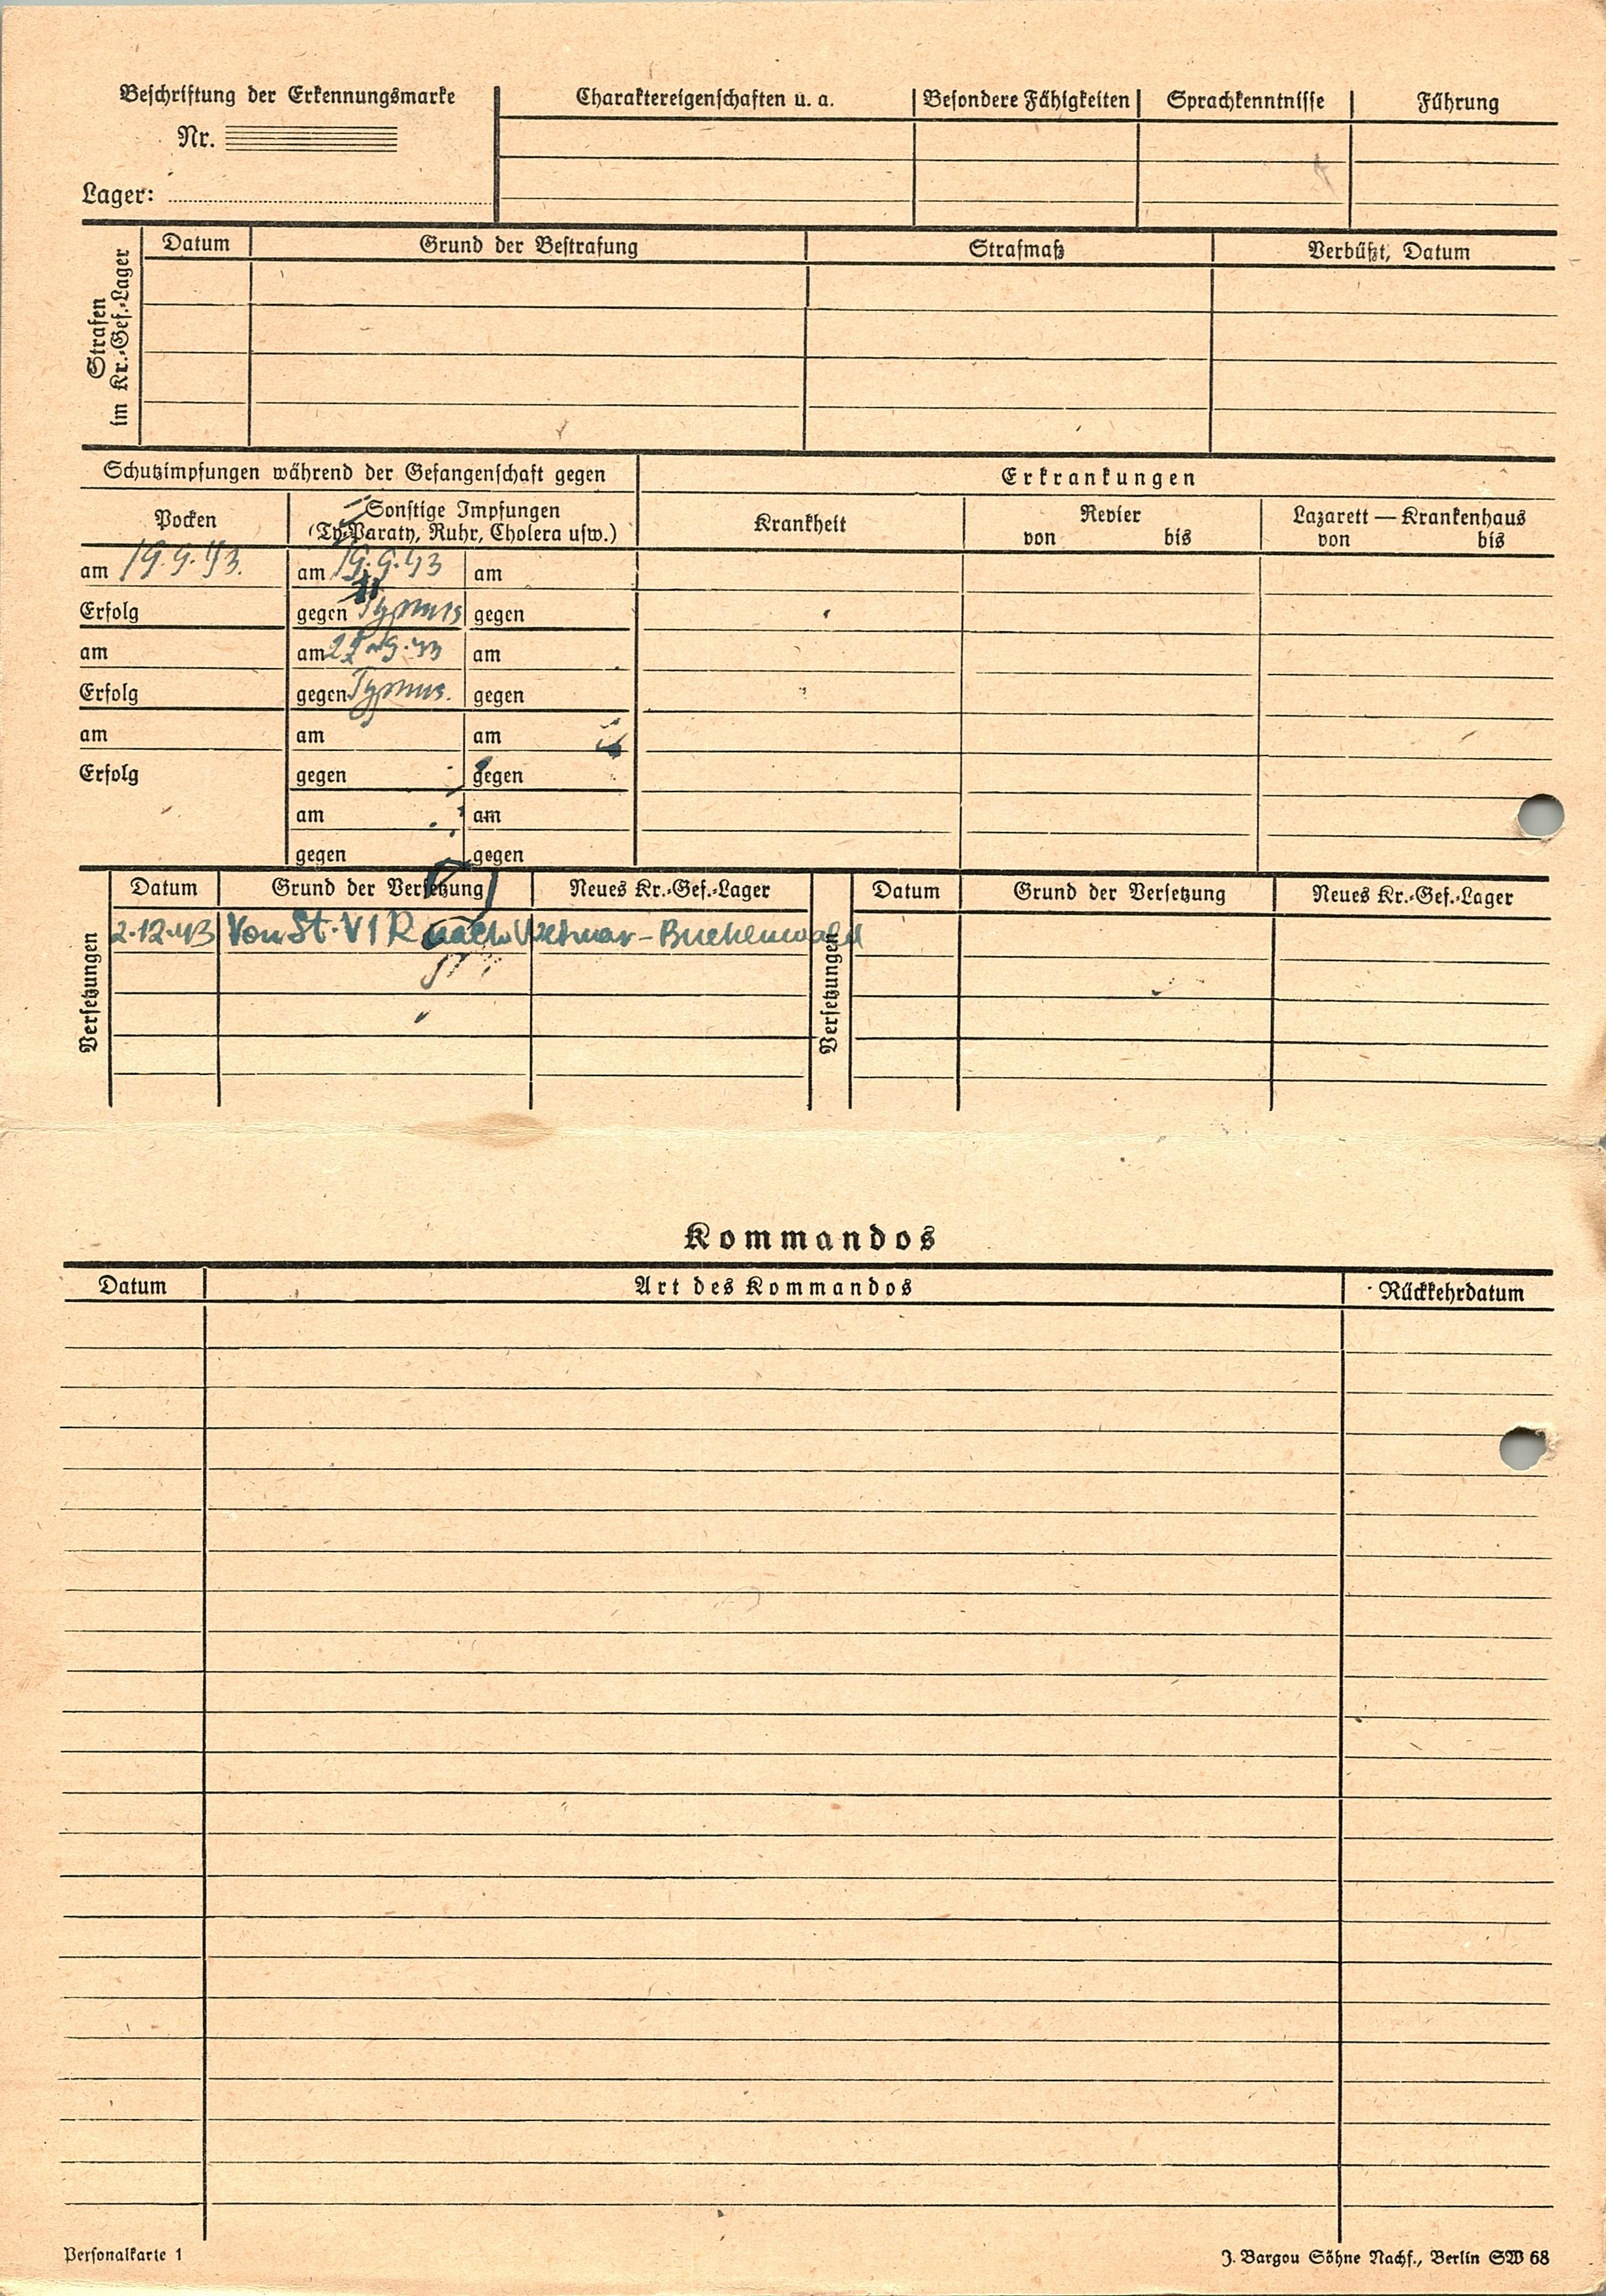 Beschriftung der Erkennungsmarke
Nr.
Lager:
Charaktereigenschaften u. a.
Besondere Fähigkeiten
Sprachkenntnisse
Führung
Strafen
im Kr.-Gef.-Lager
Datum
Grund der Bestrafung
Strafmaß
Verbüßt, Datum
Schutzimpfungen während der Gefangenschaft gegen
Erkrankungen
Pocken
Sonstige Impfungen
(Ty-Paraty, Ruhr, Cholera usw.)
Krankheit
Revier
von bis
Lazarett — Krankenhaus
von bis
am 19.9.43. am 19.9.43 am
Erfolg gegen Typhus gegen
am am 9.43 am
Erfolg gegen Typhus. gegen
am am am
Erfolg gegen gegen
am am
gegen gegen
Versetzungen
Datum Grund der Versetzung Neues Kr.-Gef.-Lager
2.12.43 Von St. VI R nach Weimar-Buchenwald
Versetzungen
Datum Grund der Versetzung Neues Kr.-Gef.-Lager
Kommandos
Datum Art des Kommandos Rückkehrdatum
Personalkarte 1
J. Bargou Söhne Nachf., Berlin SW 68